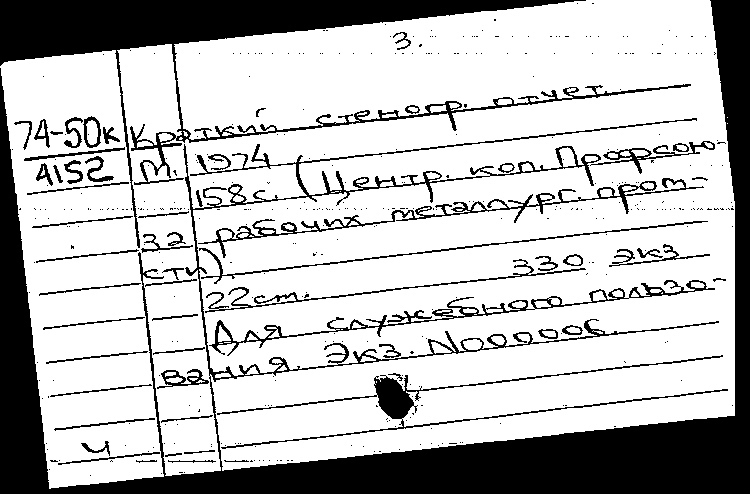 3.
74-50к Краткий стеногр. отчет.
4152 М. 1974
158с. (Центр. ком. Профсою-
за рабочих металлург. пром-
сти).
22см. 330 экз
Для служебного пользо-
вания. Экз. N000006.
Ч